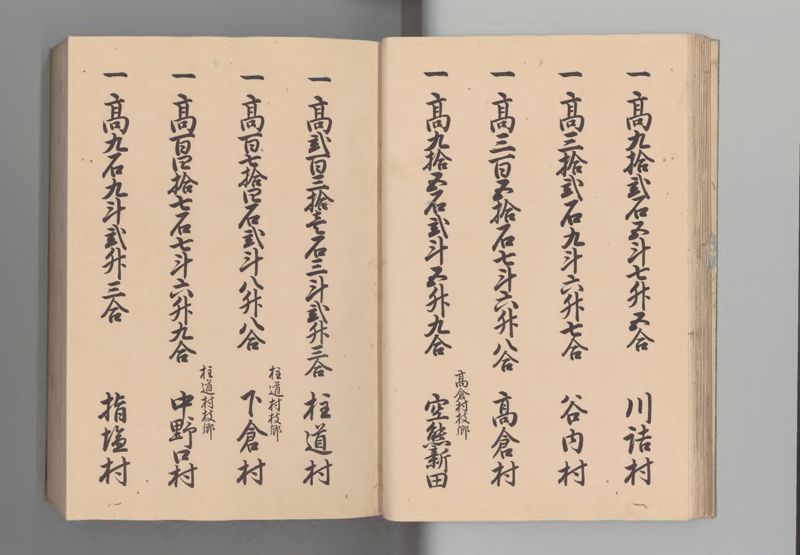 一 高九拾弐石五斗七升五合 川詰村
一 高三拾弐石九斗六升七合 谷内村
一 高三百五拾石七斗六升八合 高倉村
高倉村枝郷
一 高九拾五石弐斗五升九合 空熊新田
一 高弐百三拾壱石三斗弐升三合 柱道村
柱道村枝郷
一 高百七拾四石弐斗八升八合 下倉村
柱道村枝郷
一 高百四拾七石七斗六升九合 中野口村
一 高九石九斗弐升三合 指塩村